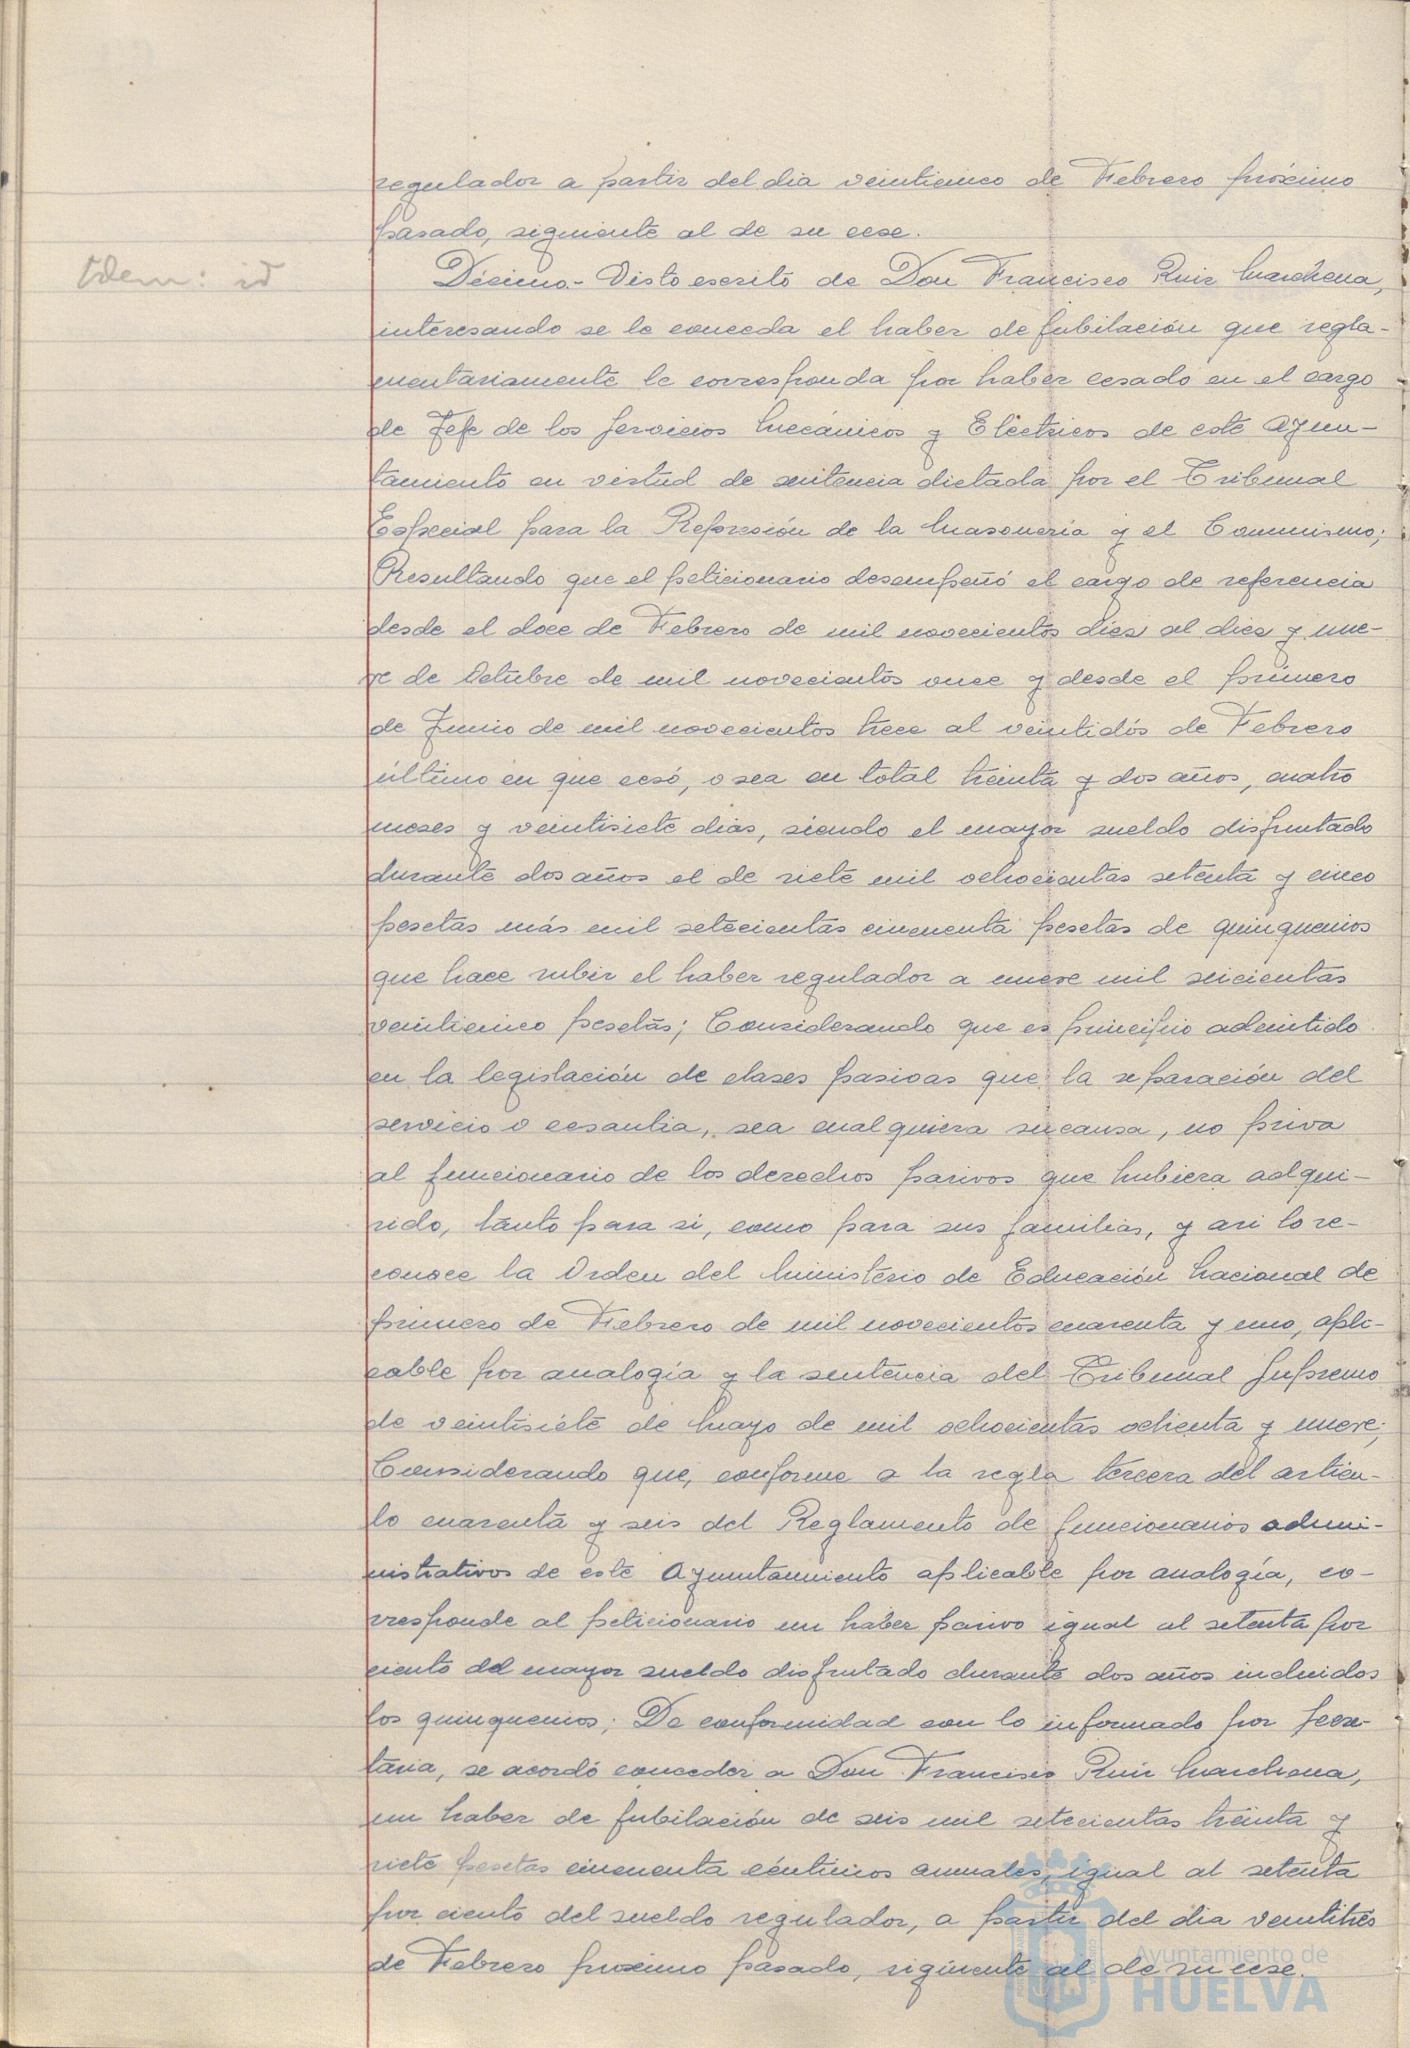 regulador a partir del dia veinticinco de Febrero próximo
pasado, siguiente al de su cese.
Idem: id
Décimo.- Visto escrito de Don Francisco Ruiz Marchena,
interesando se le conceda el haber de jubilación que regla-
mentariamente le corresponda por haber cesado en el cargo
de Jefe de los Servicios Mecánicos y Eléctricos de este Ayun-
tamiento en virtud de sentencia dictada por el Tribunal
Especial para la Represión de la Masonería y el Comunismo;
Resultando que el peticionario desempeñó el cargo de referencia
desde el doce de Febrero de mil novecientos diez al diez y nue-
ve de Octubre de mil novecientos once y desde el primero
de Junio de mil novecientos trece al veintidós de Febrero
último en que cesó, o sea en total treinta y dos años, cuatro
meses y veintisiete dias, siendo el mayor sueldo disfrutado
durante dos años el de siete mil ochocientas setenta y cinco
pesetas más mil setecientas cincuenta pesetas de quinquenios
que hace subir el haber regulador a nueve mil seicientas
veinticinco pesetas; Considerando que es principio admitido
en la legislación de clases pasivas que la separación del
servicio o cesantia, sea cualquiera su causa, no priva
al funcionario de los derechos pasivos que hubiera adqui-
rido, tanto para si, como para sus familias, y asi lo re-
conoce la Orden del Ministerio de Educación Nacional de
primero de Febrero de mil novecientos cuarenta y uno, apli-
cable por analogía y la sentencia del Tribunal Supremo
de veintisiete de Mayo de mil ochocientas ochenta y nueve;
Considerando que, conforme a la regla tercera del articu-
lo cuarenta y seis del Reglamento de funcionarios admi-
nistrativos de este Ayuntamiento aplicable por analogía, co-
rresponde al peticionario un haber pasivo igual al setenta por
ciento del mayor sueldo disfrutado durante dos años incluidos
los quinquenios; De conformidad con lo informado por Secre-
taria, se acordó conceder a Don Francisco Ruiz Marchena,
un haber de jubilación de seis mil setecientas treinta y
siete pesetas cincuenta céntimos anuales, igual al setenta
por ciento del sueldo regulador, a partir del dia veintitres
de Febrero proximo pasado, siguiente al de su cese.
Ayuntamiento de
HUELVA